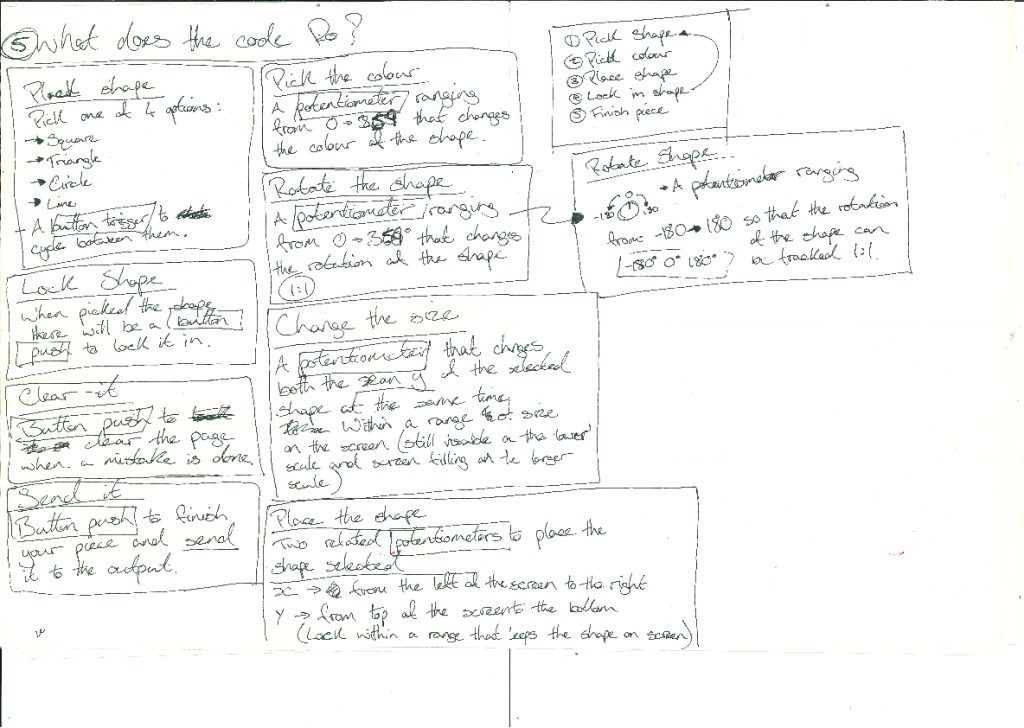 ⑤ What does the code Do?
① Pick shape
② Pick colour
③ Place shape
④ Lock in shape
⑤ Finish piece
shape
Pick one of 4 options:
→ Square
→ Triangle
→ Circle
→ Line
- A button trigger to
cycle between them.
Lock Shape
When picked the shape
there will be a button
push to lock it in.
Clear it
Button push to
clear the page
when a mistake is done.
Send it
Button push to finish
your piece and send
it to the output.
Pick the colour
A potentiometer ranging
from 0 → 359 that changes
the colour of the shape.
Rotate the shape
A potentiometer ranging
from 0 → 359° that changes
the rotation of the shape
1:1
Change the size
A potentiometer that chnges
both the x an y of the selected
shape at the same time,
Within a range of size
on the screen (still visable a the lower
scale and screen filling on the larger
scale)
Place the shape
Two related potentiometers to place the
shape selected
x → from the left of the screen to the right
Y → from top of the screen to the bottom
(Lock within a range that keeps the shape on screen)
Rotate Shape
→ A potentiometer ranging
-180 0 180
from -180 → 180 so that the rotation
of the shape can
be tracked 1:1.
-180° 0° 180°